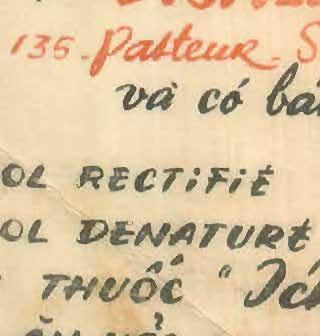 135 - Pasteur - S
và có bá
OL RECTiFiÉ
OL DENATURÉ
THUỐC "Ích